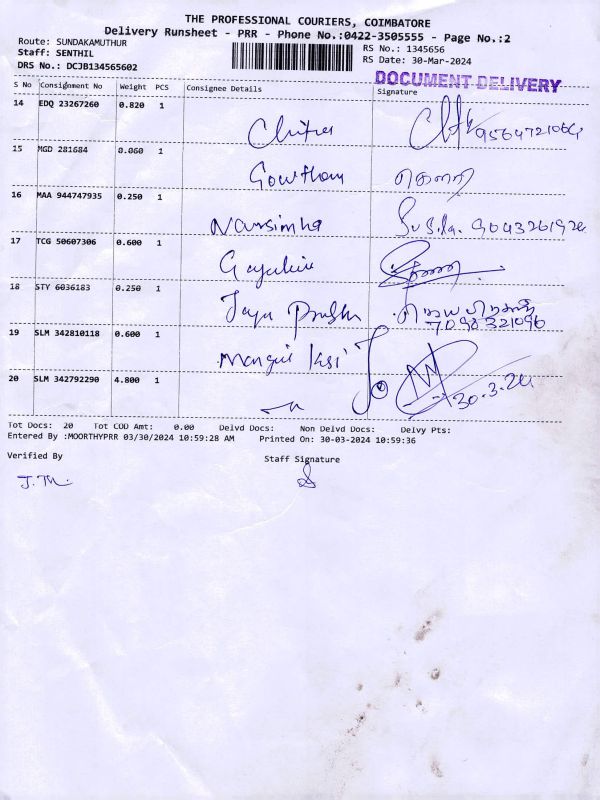 THE PROFESSIONAL COURIERS, COIMBATORE
Delivery Runsheet - PRR - Phone No.:0422-3505555 - Page No.:2
Route: SUNDAKAMUTHUR
RS No.: 1345656
Staff: SENTHIL
RS Date: 30-Mar-2024
DRS No.: DCJB134565602
DOCUMENT DELIVERY
S No Consignment No Weight PCS Consignee Details Signature
14 EDQ 23267260 0.820 1
Chitra
15 MGD 281684 0.060 1
Gowtham
16 MAA 944747935 0.250 1
Narsimha Susila. 9043261924
17 TCG 50607306 0.600 1
18 STY 6036183 0.250 1
Jaya
7098321096
19 SLM 342810118 0.600 1
20 SLM 342792290 4.800 1
30.3.24
Tot Docs: 20 Tot COD Amt: 0.00 Delvd Docs: Non Delvd Docs: Delvy Pts:
Entered By :MOORTHYPRR 03/30/2024 10:59:28 AM Printed On: 30-03-2024 10:59:36
Verified By Staff Signature